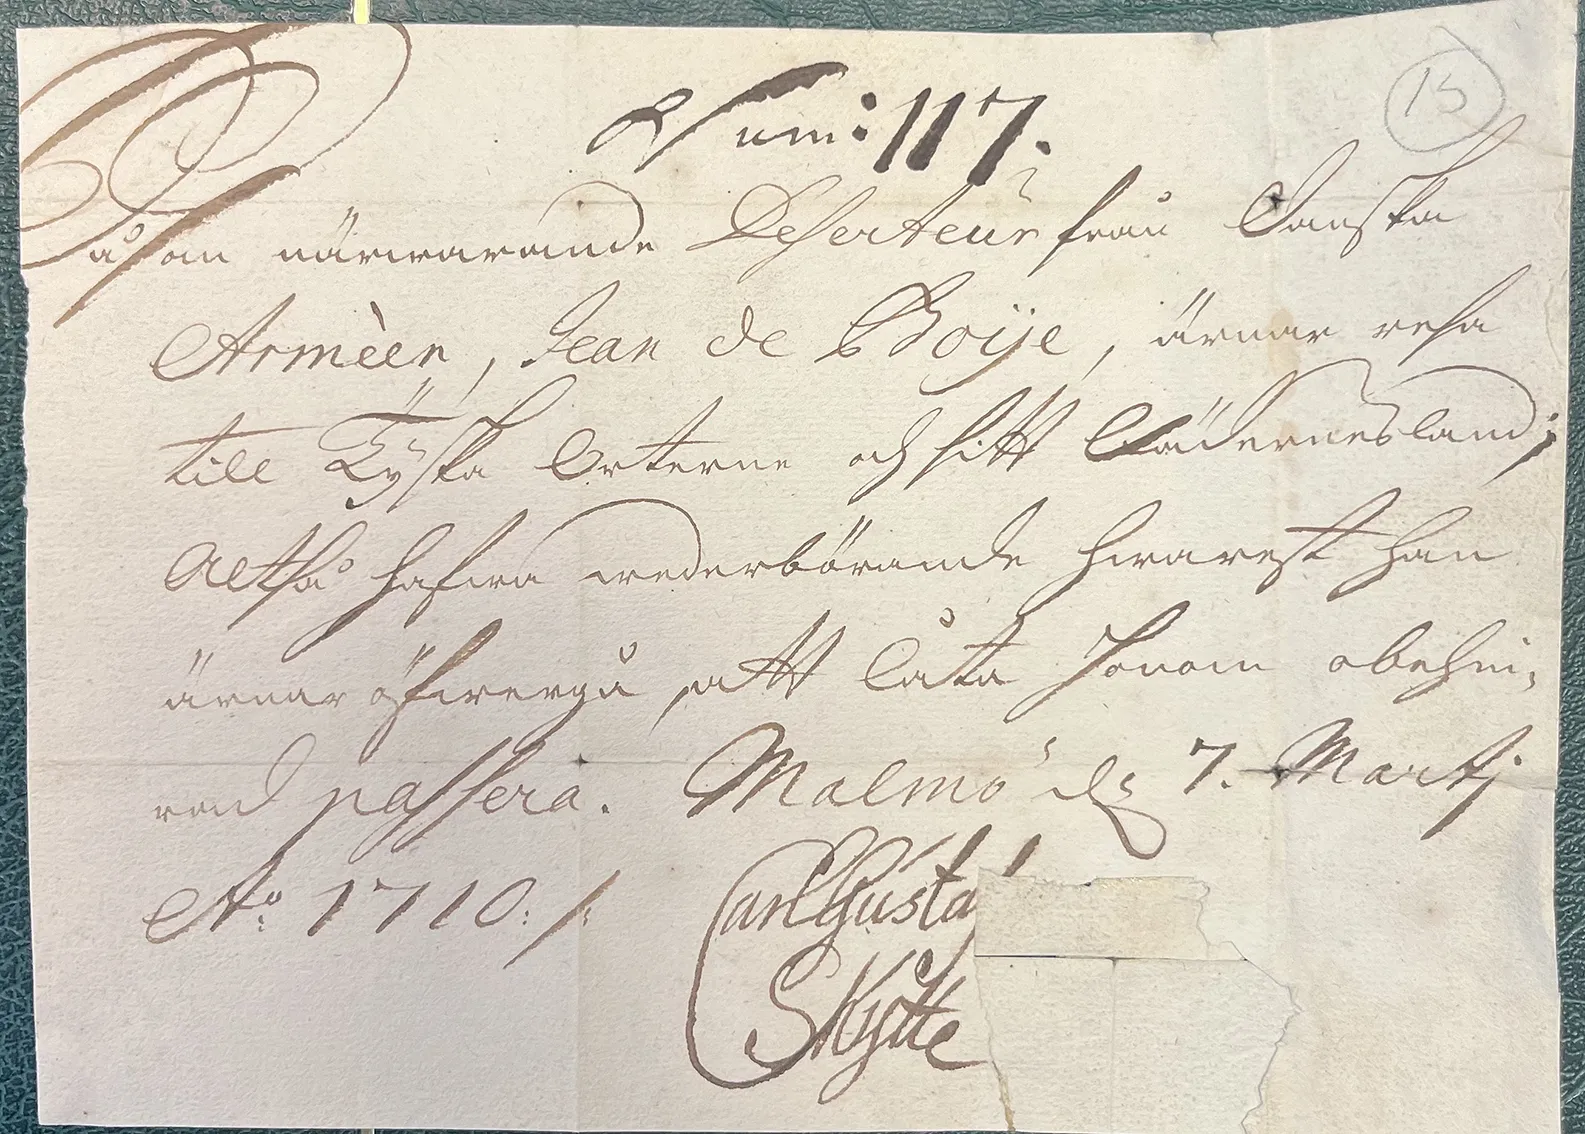 15
Num: 117.
Såsom närwarande Deserteur från Danska
Armèen, Jean de Boije, ärnar resa
till Tÿska Orterne och sitt Fädernesland;
Altså hafwa wederbörande hwarest han
ärnar öfwergå, att låta honom obehin,
rad passera. Malmö d. 7. Martij
Ao. 1710:/:
Carl Gusta
Skÿtte